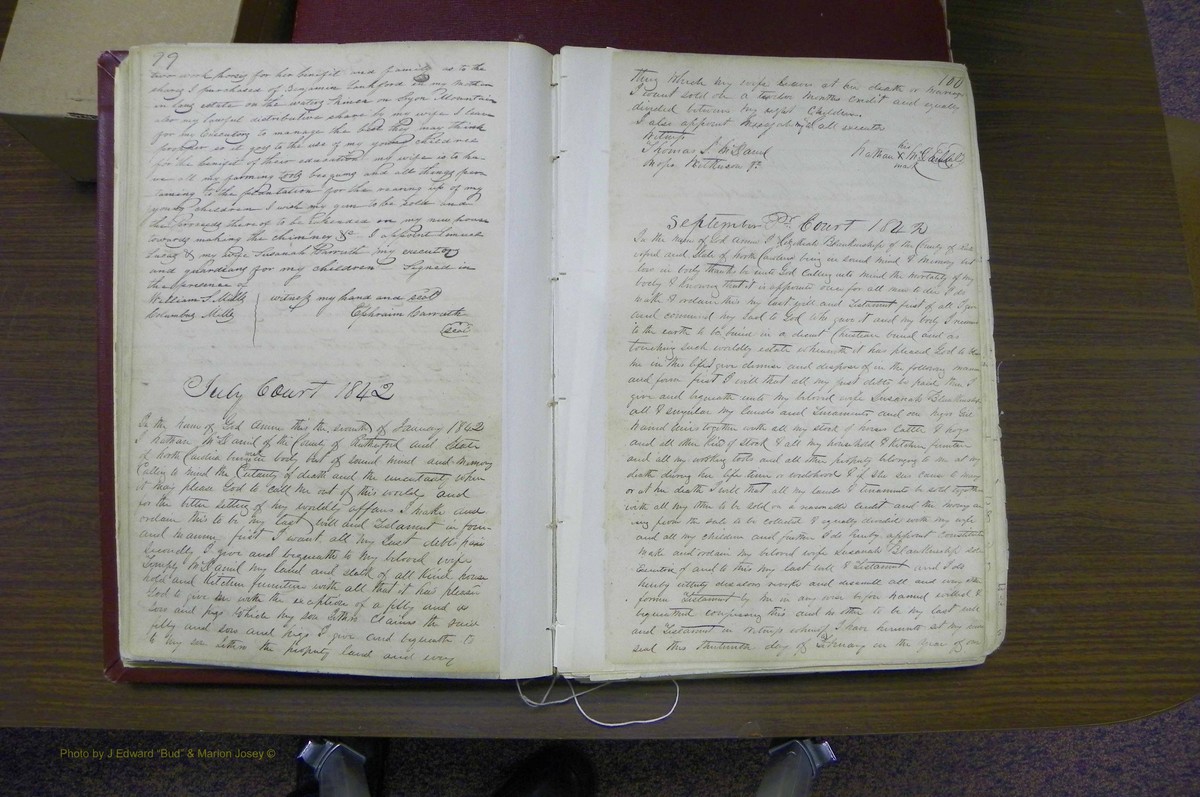 99
work horses for his benefit and family as to the
shares I purchased of Benjamin Lankford in my Mothers
in Laws estate on the waters James on Lyon Mountain
also my lawful distributive share by my wife I leave
for my Executors to manage the best they may think
proper so it goes to the use of my young children
for the benefit of their education my wife is to have
use all my farming tools Waggons and all things
to the plantation for the rearing up of my
young children I wish my gun to be sold and
the proceeds there of to be Expended on my new house
towards making the chimney &c I appoint
Lucas & my wife Susanah Carruth my executors
and guardians for my children Signed in
the presence of
William S. Mills witness my hand and seal
Columbus Mills Ephraim Carruth
Seal
July Court 1842
In the name of God amen this the seventh of January 1842
I Nathan McDaniel of the County of Rutherford and State
of North Carolina being in body but of sound mind and memory
Calling to mind the Certainty of death and the uncertainty when
it may please God to call me out of this world and
for the better settling of my worldly affairs I make and
ordain this to be my last will and Testament in form
and manner first I want all my Just debts paid
Secondly I give and bequeath to my beloved wife
McDaniel my land and stock of all kind house
hold and Kitchen furniture with all that it has pleased
God to give me with the exception of a filly and a
Sow and pigs Which my son claims the said
filly and sow and pigs I give and bequeath to
to my son the property land and every
100
thing Which my wife leaves at her death or marriage
I want sold on a twelve months credit and equally
divided between my Children
I also appoint all executor
Witness
Thomas S. McDaniel his
Nathan X McDaniel
mark
September Court 1842
In the name of God amen I Blankenship of the County of
and State of North Carolina being in sound mind & memory but
low in body thanks be unto God Calling unto mind the mortality of my
body & knowing that it is appointed once for all men to die I do
make & ordain this my last will and Testament first of all I give
and commend my soul to God who gave it and my body I
to the earth to be buried in a decent Christian burial and as
touching such worldly estate wherewith it has pleased God to bless
me in this life I give demise and dispose of in the following manner
and form first I will that all my just debts be paid then I
give and bequeath unto my beloved wife Susanah Blankenship
all & singular my lands and tenements and one
named together with all my stock of horses Cattle & hogs
and all other kind of stock & all my household & kitchen furniture
and all my working tools and all other property belonging to me at my
death during her life time or widowhood & if she see cause to marry
or at her death I will that all my lands & tenements be sold together
with all my other to be sold on a reasonable credit and the money
from the sale to be collected & equally divided with my wife
and all my children and further I do hereby appoint Constitute
make and ordain my beloved wife Susanah Blankenship
Executrix of and to this my last will & Testament and I do
hereby utterly disalow revoke and disanull all and every other
former Testament by me in any ever before named willed &
bequeathed confirming this and no other to be my last will
and Testament in witness whereof I have hereunto set my hand
seal this day of February in the year of our
Photo by J Edward "Bud" & Marion Josey ©